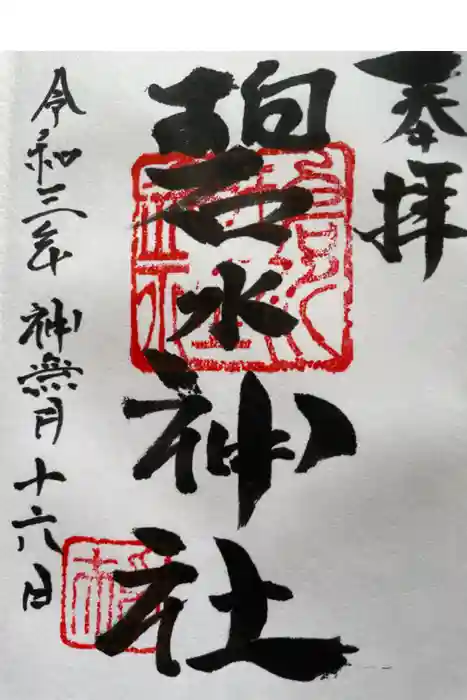 奉拝
碧水神社
令和三年 神無月十六日